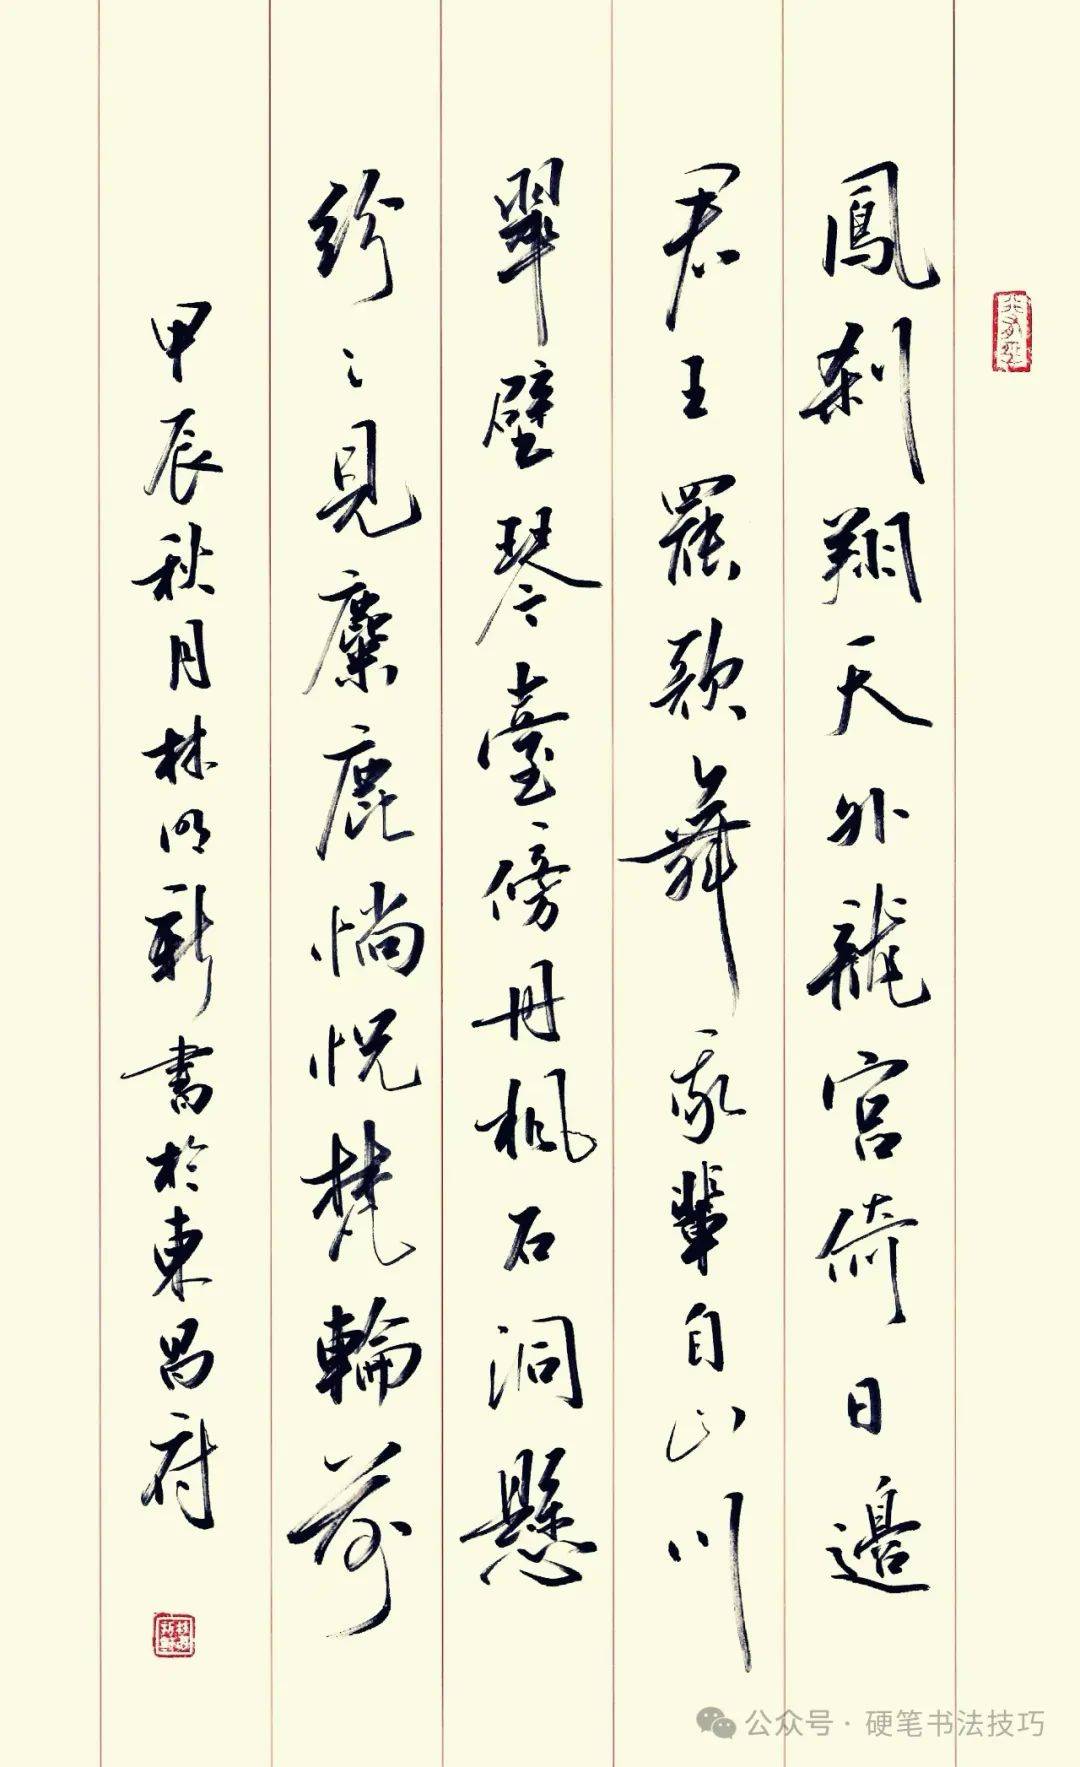 鳳刹翔天外龍宮倚日邊
君王罷歌舞我輩自山川
翠壁琴臺傍丹楓石洞懸
紛々見麋鹿惝怳梵輪前
甲辰秋月林明新書於東昌府
公众号·硬笔书法技巧